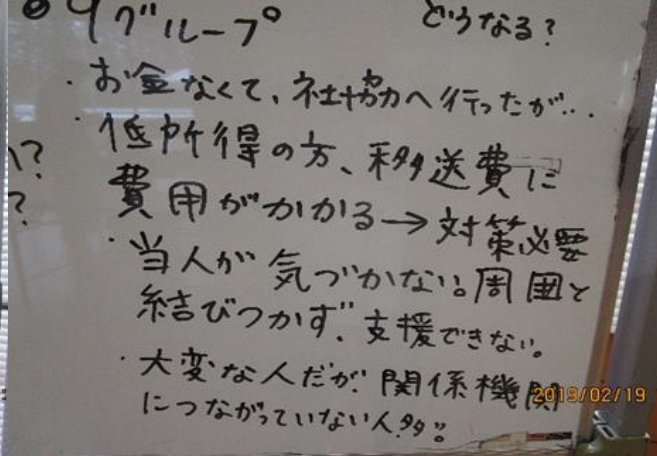 ●4グループ
どうなる?
・お金なくて、社協へ行ったが‥
・低所得の方、移送費に
費用がかかる→対策必要
・当人が気づかない。周囲と
結びつかず、支援できない。
・大変な人だが関係機関
につながっていない人多。
!?
?
2019/02/19